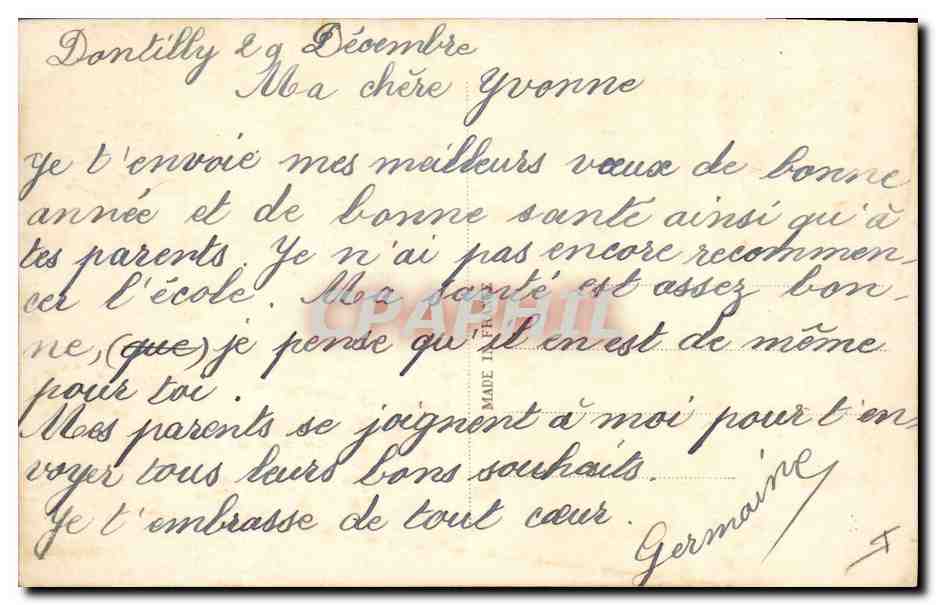 Dontilly 29 Décembre
Ma chère Yvonne
Je t'envoie mes meilleurs vœux de bonne
année et de bonne santé ainsi qu'à
tes parents. Je n'ai pas encore recommen-
cer l'école. Ma santé est assez bon-
ne, (que) je pense qu'il en est de même
pour toi.
Mes parents se joignent à moi pour t'en-
voyer tous leurs bons souhaits.
Je t'embrasse de tout cœur.
Germaine
MADE IN FRANCE
CPAPHIL